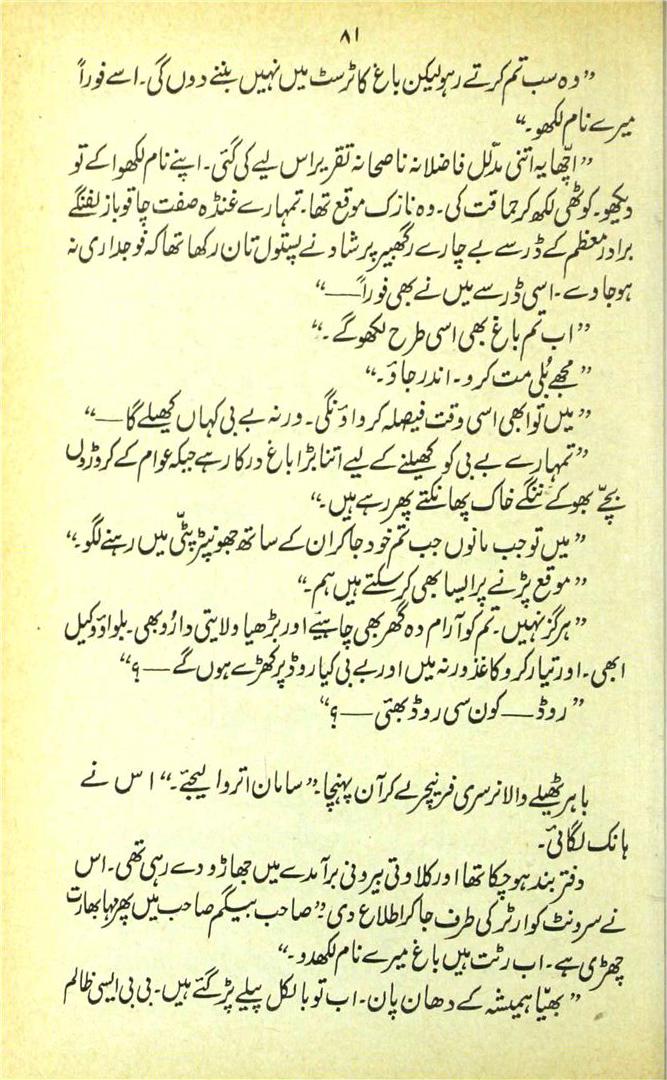 ۸۱
”وہ سب تم کرتے رہو لیکن باغ کا ٹرسٹ میں نہیں بننے دوں گی۔ اسے فوراً
میرے نام لکھو۔“
”اچھا یہ اتنی مدلّل فاضلانہ ناصحانہ تقریر اس لیے کی گئی۔ اپنے نام لکھوا کے تو
دیکھو۔ کوٹھی لکھ کر حماقت کی۔ وہ نازک موقع تھا۔ تمہارے غنڈہ صفت چاقو باز لفنگے
برادر معظم کے ڈر سے بے چارے رگھبیر پرشاد نے پستول تان رکھا تھا کہ فوجداری نہ
ہو جاوے۔ اسی ڈر سے میں نے بھی فوراً —“
”اب تم باغ بھی اسی طرح لکھو گے۔“
”مجھے بُلی مت کرو۔ اندر جاؤ۔“
”میں تو ابھی اسی وقت فیصلہ کرواؤنگی۔ ورنہ بے بی کہاں کھیلے گا —“
”تمہارے بے بی کو کھیلنے کے لیے اتنا بڑا باغ درکار ہے جبکہ عوام کے کروڑوں
بچّے بھوکے ننگے خاک پھانکتے پھر رہے ہیں۔“
”میں تو جب مانوں جب تم خود جا کر ان کے ساتھ جھونپڑ پٹّی میں رہنے لگو۔“
”موقع پڑنے پر ایسا بھی کر سکتے ہیں ہم۔“
”ہرگز نہیں۔ تم کو آرام دہ گھر بھی چاہیئے اور بڑھیا ولایتی دارُو بھی۔ بلواؤ وکیل
ابھی۔ اور تیار کرو کاغذ ورنہ میں اور بے بی کیا روڈ پر کھڑے ہوں گے — ؟“
”روڈ — کون سی روڈ بھئی — ؟“
باہر ٹھیلے والا نرسری فرنیچر لے کر آن پہنچا۔ ”سامان اتروا لیجئے۔“ اس نے
ہانک لگائی۔
دفتر بند ہو چکا تھا اور کلاوتی بیرونی برآمدے میں جھاڑو دے رہی تھی۔ اس
نے سرونٹ کوارٹر کی طرف جا کر اطلاع دی۔ ”صاحب بیگم صاحب میں پھر مہابھارت
چھڑی ہے۔ اب رٹت ہیں باغ میرے نام لکھدو۔“
”بھیّا ہمیشہ کے دھان پان۔ اب تو بالکل پیلے پڑ گئے ہیں۔ بی بی ایسی ظالم